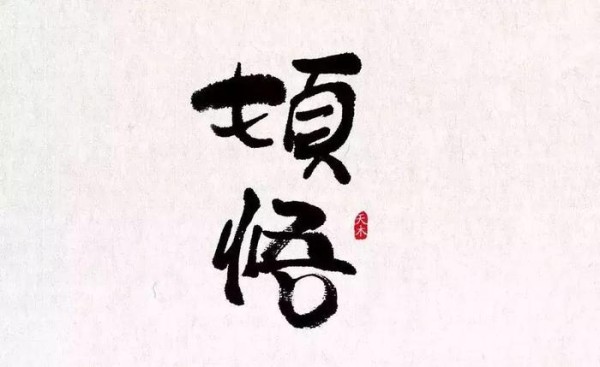 頓
悟
天木